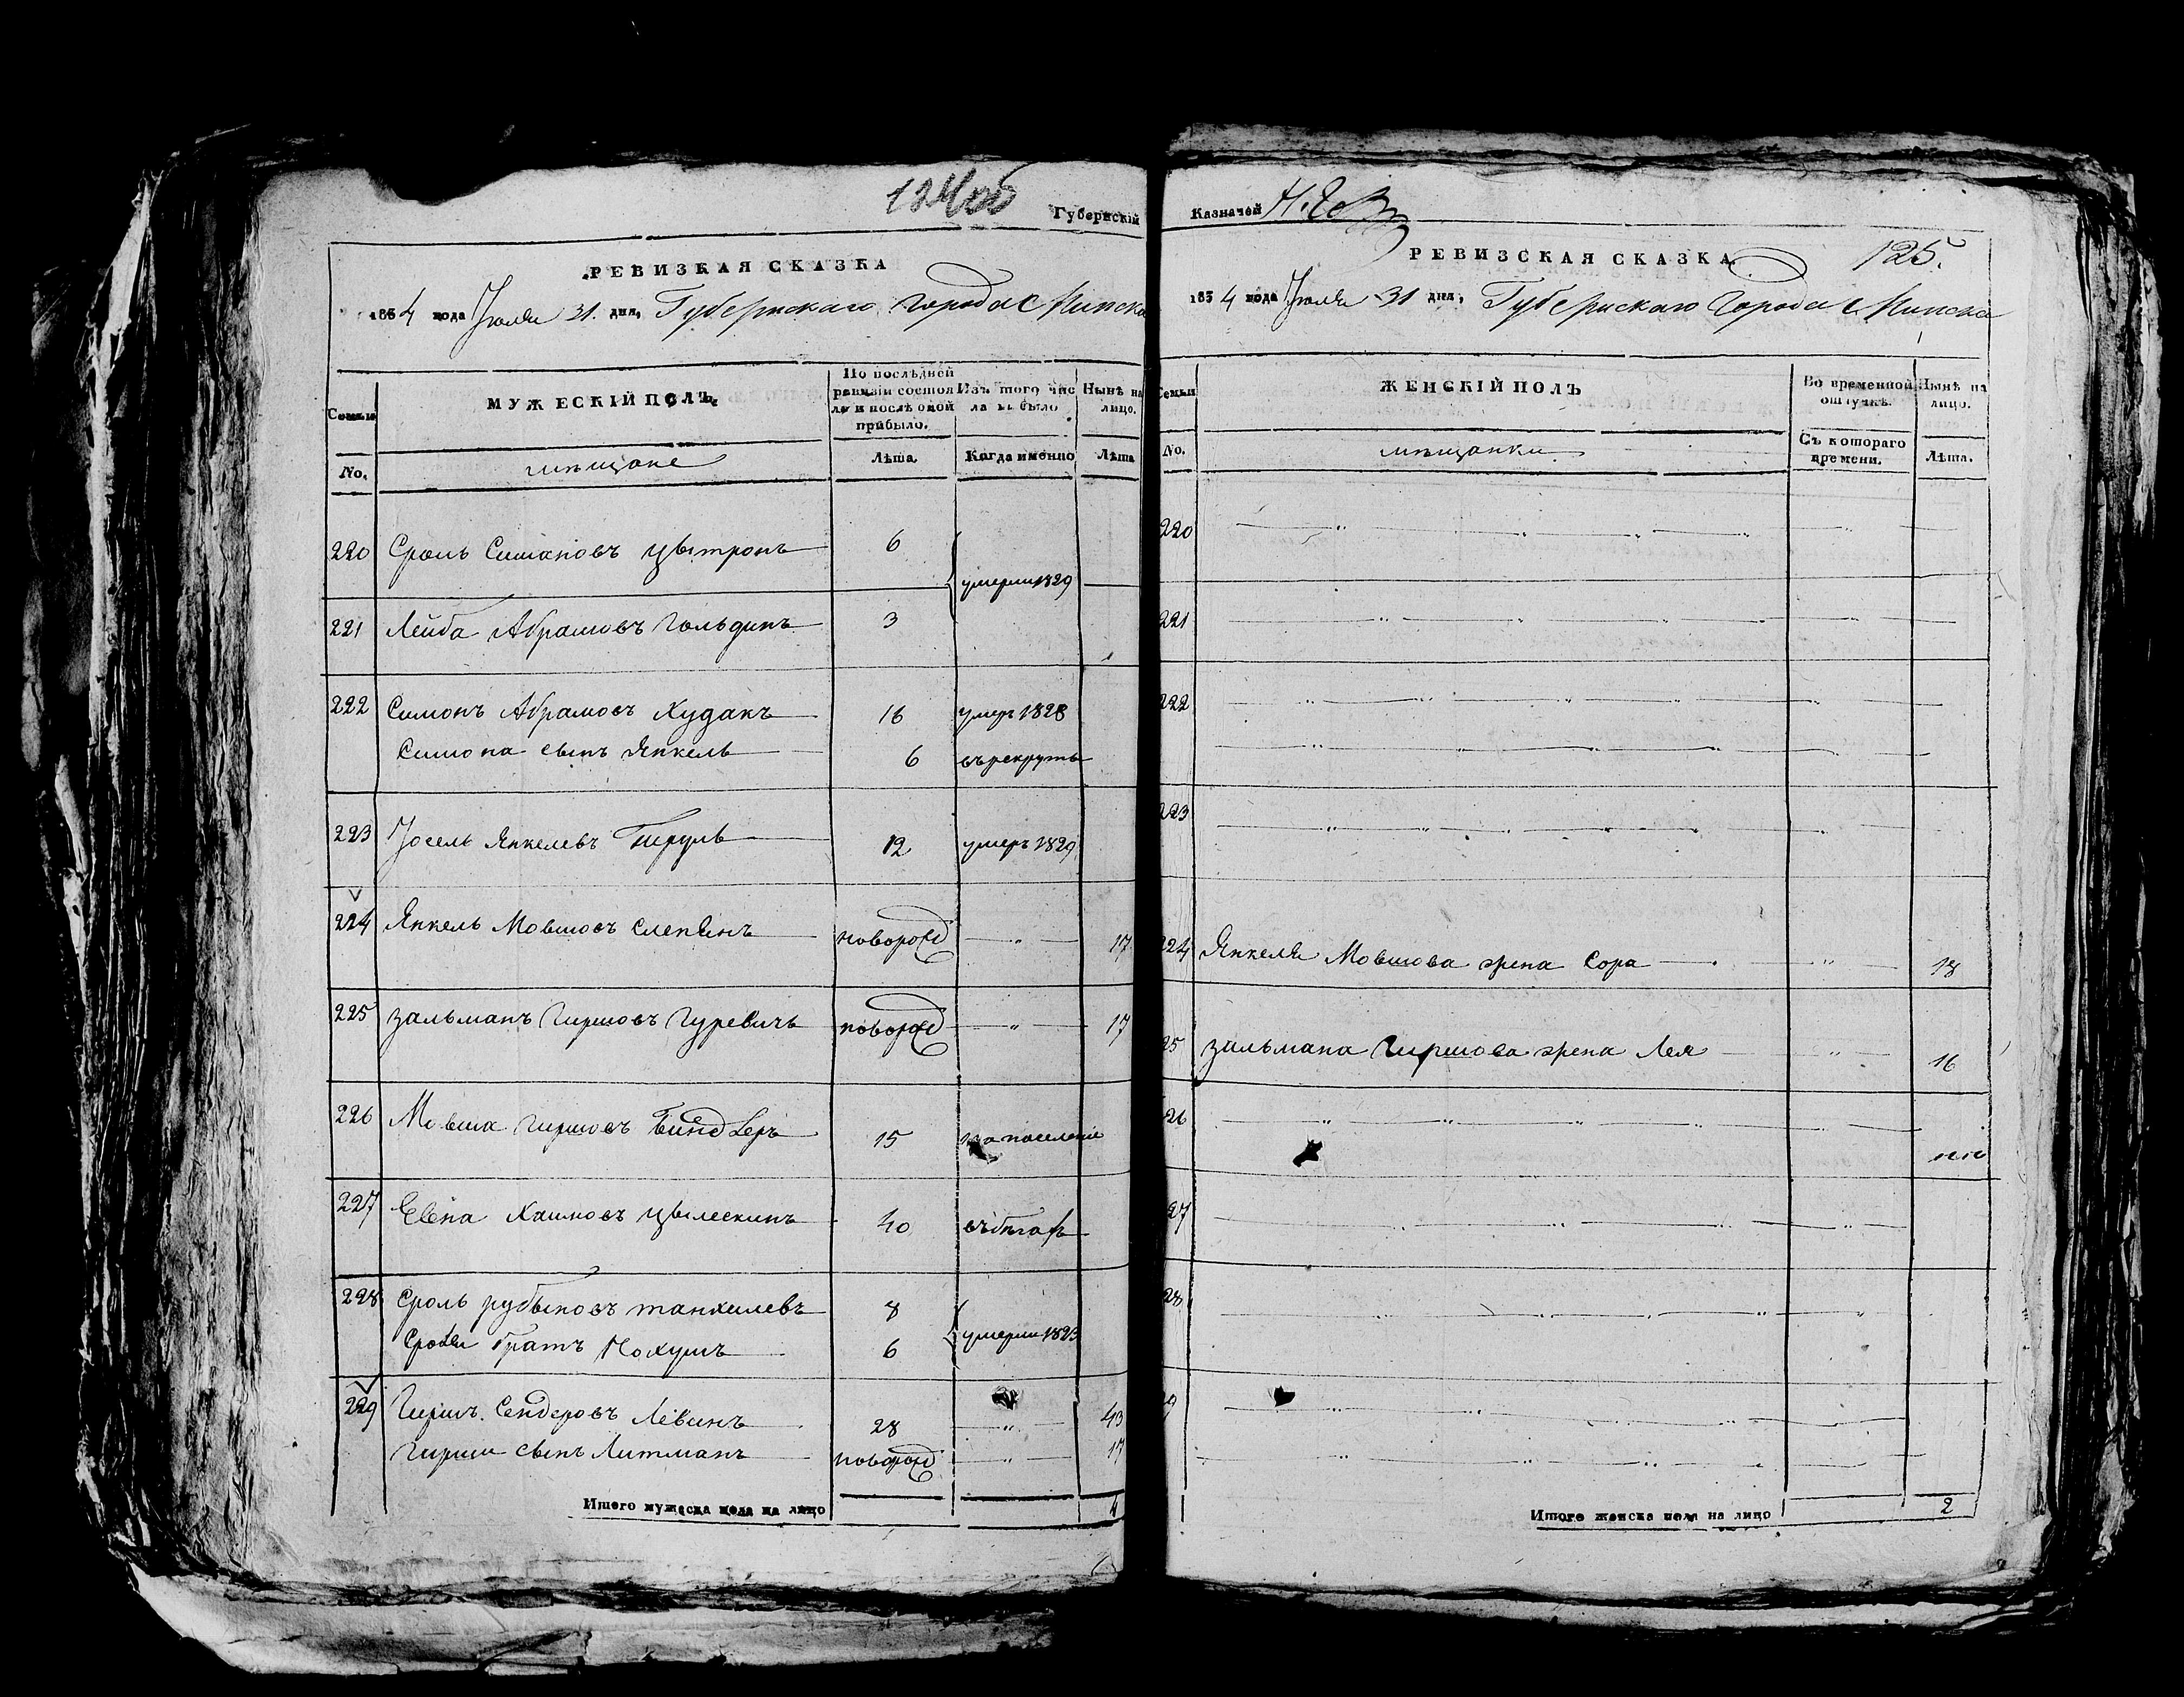 124об
Губернскій
РЕВИЗКАЯ СКАЗКА
1834 года Іюля 31 дня, Губернскаго города Минска
Семьи
МУЖЕСКІЙ ПОЛЪ.
По послѣдней ревизіи состояло и послѣ оной прибыло.
Изъ того числа выбыло
Нынѣ на лицо.
No.
мѣщане
Лѣта
Когда именно
Лѣта
220 Сроль Симановъ Цытронъ 6
умерли 1829
221 Лейба Абрамовъ Гольдинъ 3
222 Симонъ Абрамовъ Худакъ 16 умеръ 1828
Симона сынъ Янкель 6 въ рекруты
223 Іосель Янкелевъ 12 умеръ 1829
224 Янкель Мовшовъ Слепянъ новорожд — " — 17
225 Зальманъ Гиршовъ Гуревичъ новорожд — " — 17
226 Мовша Гиршовъ Биндлеръ 15 на поселеніе
227 Евна Хаимовъ Цылескинъ 40 въ бѣгахъ
228 Сроль Рубыновъ Танхилевъ 8
умерли 1823
Сроля братъ Нохумъ 6
229 Гиршъ Сендеровъ Левинъ 28 — " — 43
Гирши сынъ Литманъ новорожд — " — 17
Итого мужеска пола на лицо 4
Казначей
125.
РЕВИЗСКАЯ СКАЗКА
1834 года Іюля 31 дня, Губернскаго города Минска
Семьи
ЖЕНСКІЙ ПОЛЪ
Во временной отлучкѣ.
Нынѣ на лицо.
No.
мѣщанки
Съ котораго времени.
Лѣта.
220
221
222
223
224 Янкеля Мовшова жена Сора — " — 18
25 Зальмана Гиршова жена Лея — " — 16
26
27
28
9
Итого женска пола на лицо 2